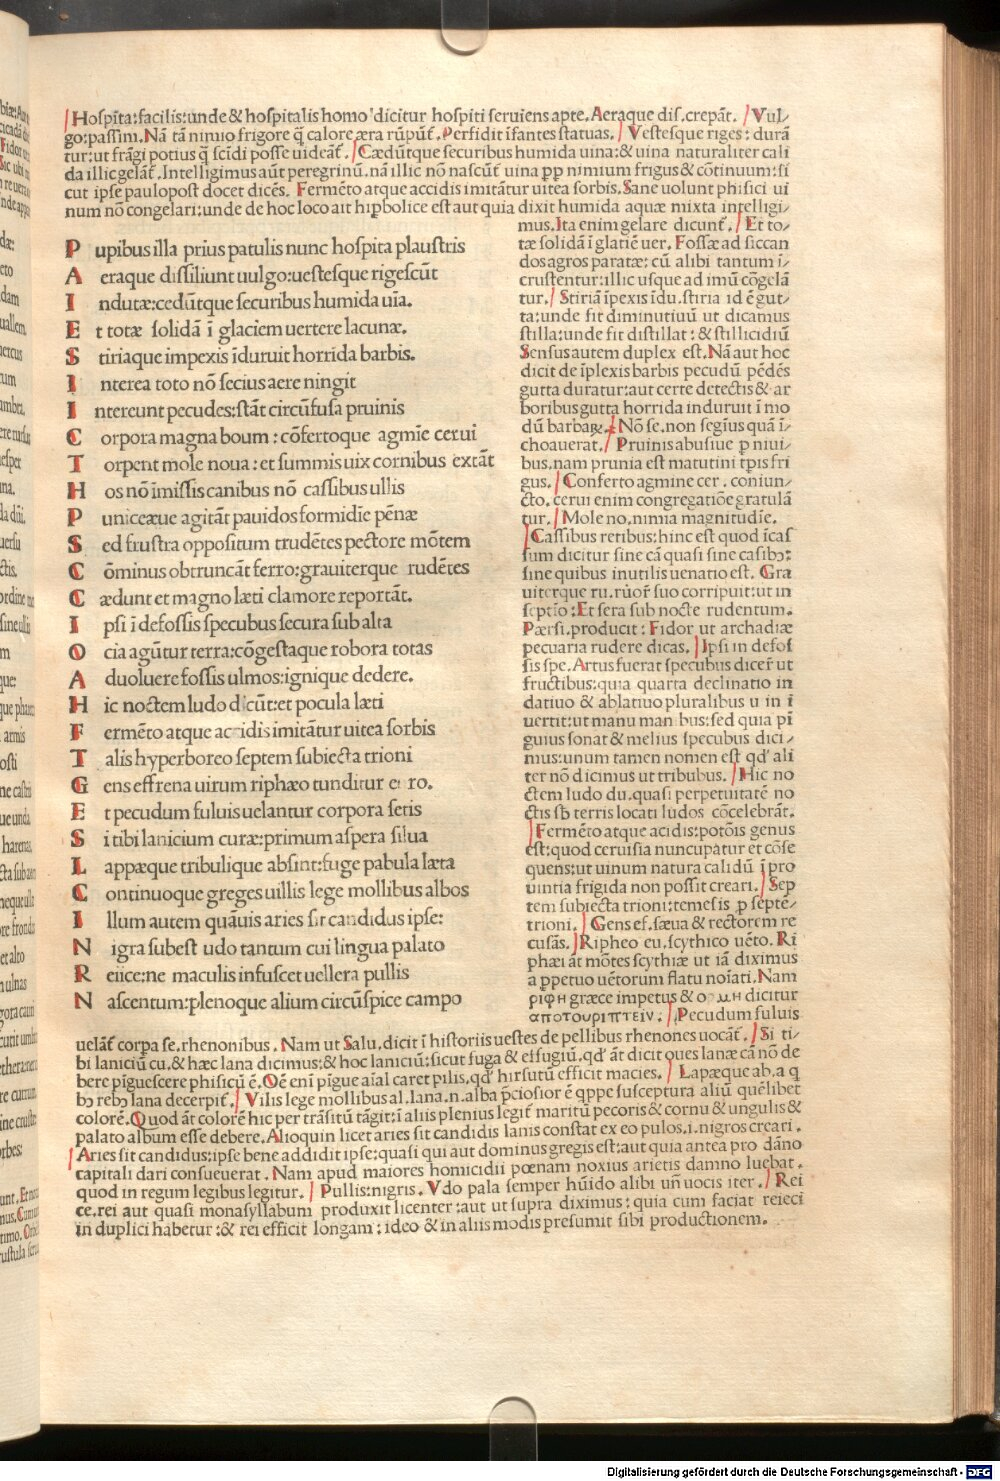 Hospīta:facilis:unde & hospitalis homo dicitur hospiti seruiens apte. Aeraque dis.crepāt. Vul-
go:passim. Nā tā nimio frigore q̄ calore æra rūpūt. Perfidit īfantes statuas. Vestesque riges: durā
tur:ut frāgi potius q̄ scīdi posse uideāt. Cædūtque securibus humida uina:& uina naturaliter cali
da illic gelāt. Intelligimus aūt peregrinū.nā illic nō nascūt uina pp nimium frigus & cōtinuum:si
cut ipse paulopost docet dicēs. Fermēto atque accidis imitātur uitea sorbis. Sane uolunt phisici ui
num nō congelari:unde de hoc loco ait hipbolice est aut quia dixit humida aquæ mixta intelligi-
mus. Ita enim gelare dicunt. Et to-
P upibus illa prius patulis nunc hospita plaustris
A eraque dissiliunt uulgo:uestesque rigescūt
I ndutæ:cedūtque securibus humida uīa.
E t totæ solidā ī glaciem uertere lacunæ.
S tiriaque impexis īduruit horrida barbis.
I nterea toto nō secius aere ningit
I ntereunt pecudes:stāt circūfusa pruinis
C orpora magna boum: cōfertoque agmīe cerui
T orpent mole noua: et summis uix cornibus extāt
H os nō īmissis canibus nō cassibus ullis
P uniceæue agitāt pauidos formidīe pēnæ
S ed frustra oppositum trudētes pectore mōtem
C ōminus obtruncāt ferro:grauiterque rudētes
C ædunt et magno læti clamore reportāt.
I psi ī defossis specubus secura sub alta
O cia agūtur terra:cōgestaque robora totas
A duoluere fossis ulmos:ignique dedere.
H ic noctem ludo dicūt:et pocula læti
F ermēto atque accidis imitātur uitea sorbis
T alis hyperboreo septem subiecta trioni
G ens effrena uirum riphæo tunditur e ro.
E t pecudum fuluis uelantur corpora setis
S i tibi lanicium curæ:primum aspera silua
L appæque tribulique absint:fuge pabula læta
C ontinuoque greges uillis lege mollibus albos
I llum autem quāuis aries sit candidus ipse:
N igra subest udo tantum cui lingua palato
R eiice:ne maculis infuscet uellera pullis
N ascentum:plenoque alium circūspice campo
tæ solidā ī glatiē uer. Fossæ ad siccan
dos agros paratæ: cū alibi tantum ī-
crustentur:illic usque ad imū cōgelā
tur. Stiriā īpexis īdu.stiria id ē gut-
ta:unde fit diminutiuū ut dicamus
stilla:unde fit distillat: & stillicidiū
Sensus autem duplex est. Nā aut hoc
dicit de īplexis barbis pecudū pēdēs
gutta duratur:aut certe detectis & ar
boribus gutta horrida induruit ī mo
dū barbaꝝ. Nō se.non segius quā ī-
choauerat. Pruinis abusiue p niui-
bus.nam prunia est matutini tpis fri
gus. Conferto agmine cer. coniun-
cto. cerui enim congregatiōe gratulā
tur. Mole no.nimia magnitudīe.
Cassibus retibus:hinc est quod īcas
sum dicitur sine cā quasi sine casibꝰ:
sine quibus inutilis uenatio est. Gra
uiterque ru.rūor suo corripuit:ut in
septīo: Et sera sub nocte rudentum.
Pærsi.producit: Fidor ut archadiæ
pecuaria rudere dicas. Ipsi in defos
sis spe. Artus fuerat specubus dicer ut
fructibus:quia quarta declinatio in
datiuo & ablatiuo pluralibus u in i
uertit:ut manu man bus:sed quia pī
guius sonat & melius specubus dici-
mus:unum tamen nomen est qd' ali
ter nō dicimus ut tribubus. Hic no
ctem ludo du.quasi perpetuitatē no
ctis sb terris locati ludos cōcelebrāt.
Fermēto atque acidis:potōis genus
est:quod ceruisia nuncupatur et cōse
quens:ut uinum natura calidū ī pro
uintia frigida non possit creari. Sep
tem subiecta trioni:temesis p septē-
trioni. Gens ef.sæua & rectorem re
cusās. Ripheo eu.scythico uēto. Ri
phæi āt mōtes scythiæ ut iā diximus
a ppetuo uētorum flatu noīati. Nam
ριφη græce impetus & ο μη dicitur
αποτουριπτειν: Pecudum fuluis
uelāt corpa se.rhenonibus. Nam ut Salu.dicit ī historiis uestes de pellibus rhenones uocāt. Si ti-
bi laniciū cu.& hæc lana dicimus:& hoc laniciū:sicut fuga & effugiū.qd' āt dicit oues lanæ cā nō de
bere pīguescere phisicū ē. Oē enī pīgue aīal caret pilis.qd' hirsutū efficit macies. Lapæque ab.a q
bꝰ rebꝰ lana decerpit. Vilis lege mollibus al.lana.n.alba pciosior ē qppe susceptura aliū quēlibet
colorē. Quod āt colorē hic per trāsitū tāgit:ī aliis plenius legit maritū pecoris & cornu & ungulis &
palato album esse debere. Alioquin licet aries sit candidis lanis constat ex eo pulos.i.nigros creari.
Aries sit candidus:ipse bene addidit ipse:quasi qui aut dominus gregis est:aut quia antea pro dāno
capitali dari consueuerat. Nam apud maiores homicidii pœnam noxius arietis damno luebat.
quod in regum legibus legitur. Pullis:nigris. Vdo pala semper hūido alibi uñ uocis iter. Rei
ce.rei aut quasi monasyllabum produxit licenter:aut ut supra diximus: quia cum faciat reieci
in duplici habetur:& rei efficit longam: ideo & in aliis modis presumit sibi productionem.
Digitalisierung gefördert durch die Deutsche Forschungsgemeinschaft - DFG